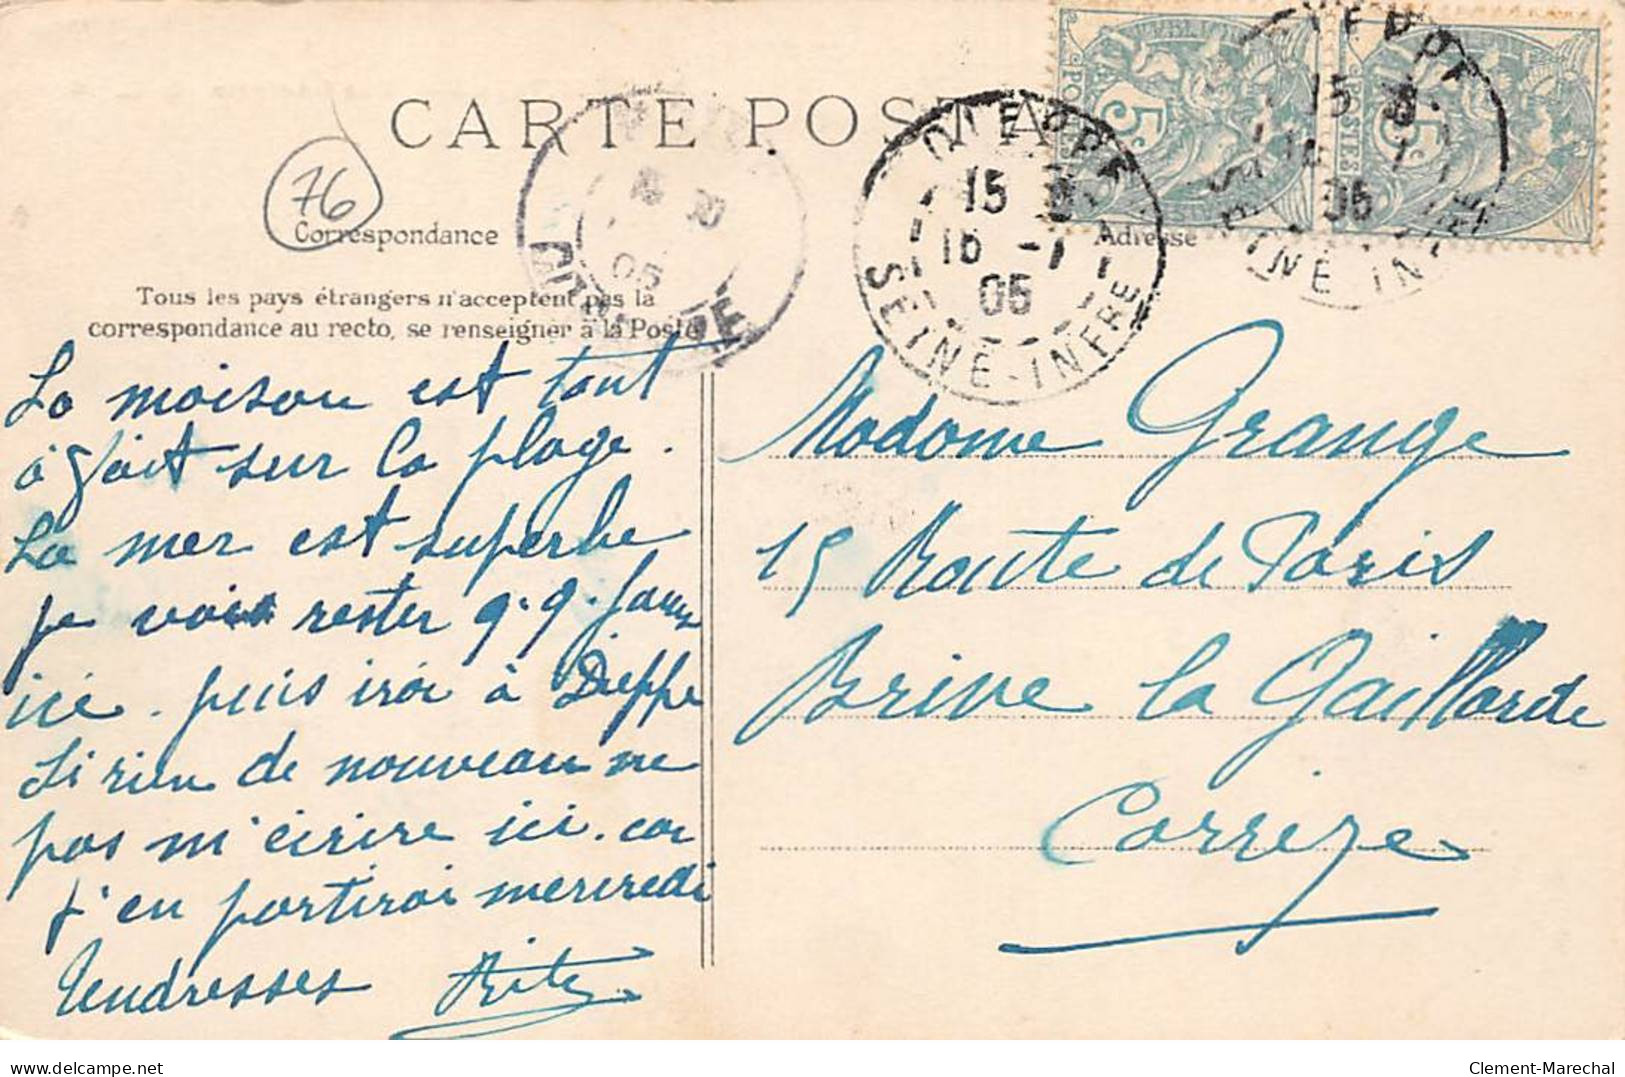 CARTE POSTA
76
Correspondance
Adresse
Tous les pays étrangers n'acceptent pas la
correspondance au recto, se renseigner à la Poste
La maison est tout
à fait sur la plage.
La mer est superbe
je vais rester q.q. jours
ici. puis irai à Dieppe
Si rien de nouveau ne
pas m'écrire ici. car
j'en partirai mercredi
Tendresses Rita
Madame Grange
15 Route de Paris
Brive la Gaillarde
Corrèze
DIEPPE
15
16 -1
05
SEINE-INFRE
5c
POSTES
5c
15
16
05
SEINE-INFRE
05
delcampe.net
Clement-Marechal